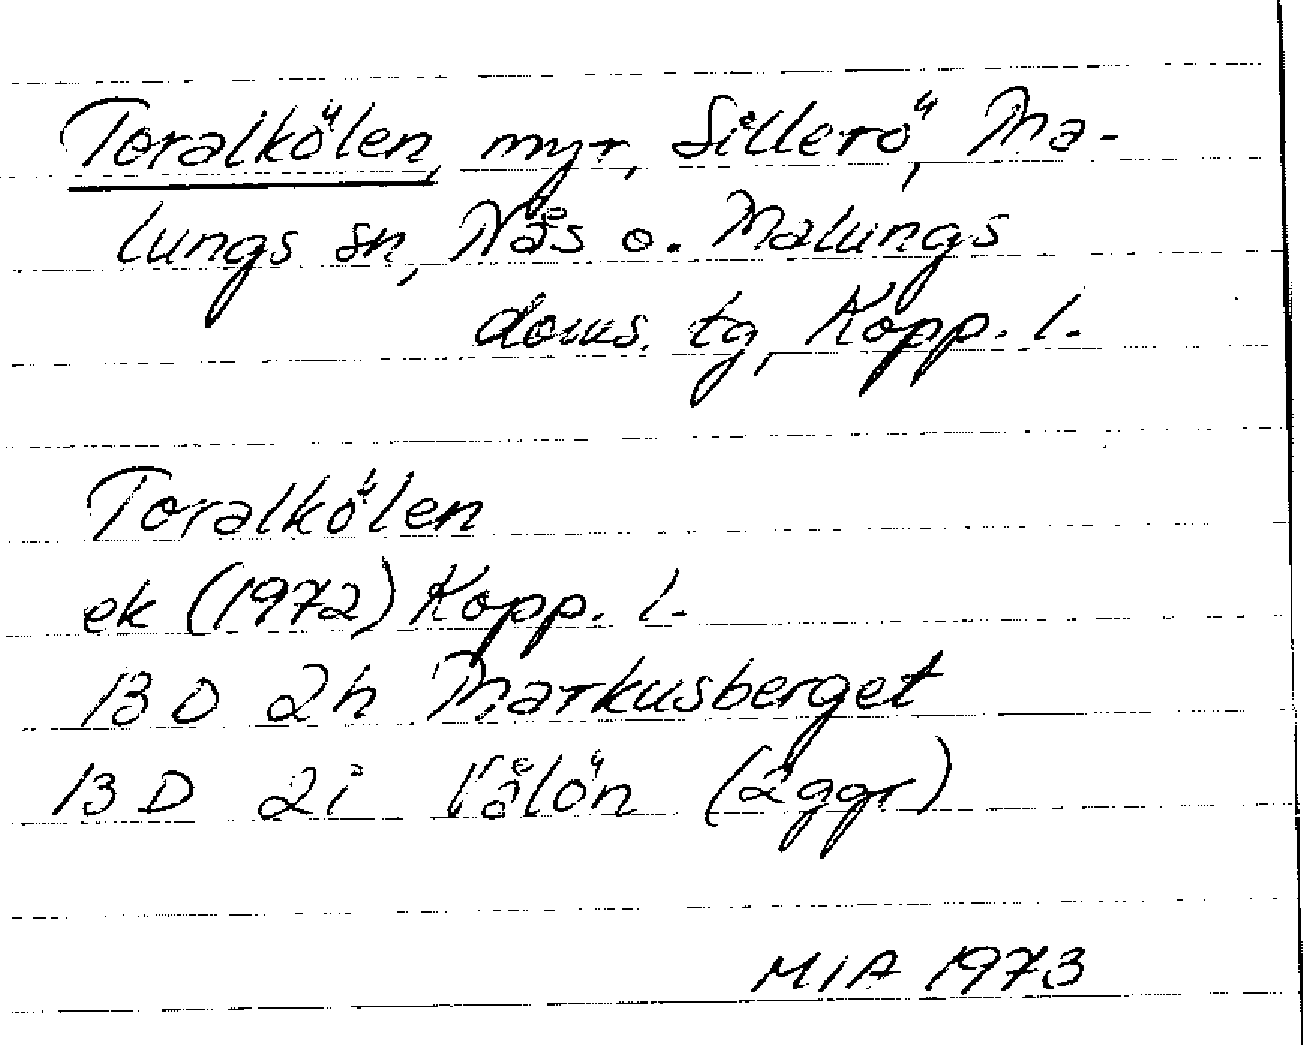 Toralkölen, myr, Sillerö, Ma-
lungs sn, Nås o. Malungs
doms. tg, Kopp. l.
Toralkölen
ek (1972) Kopp. l.
13 D 2h Markusberget
13 D 2i Vålön (2ggr)
MIA 1973